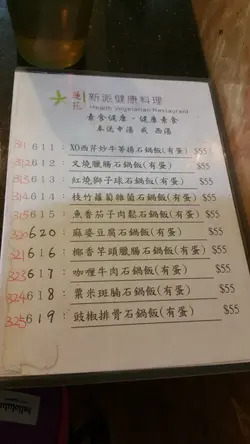 蓮花 新派健康料理
Health Vegetarian Restaurant
素食健康，健康素食
奉送中湯 或 西湯
311 611：XO西芹炒牛蒡揚石鍋飯(有蛋) $55
312 612：叉燒臘腸石鍋飯(有蛋) $55
313 613：紅燒獅子球石鍋飯(有蛋) $55
314 614：枝竹蘿蔔雜菌石鍋飯(有蛋) $55
315 615：魚香茄子肉鬆石鍋飯(有蛋) $55
320 620：麻婆豆腐石鍋飯(有蛋) $55
321 616：椰香芋頭臘腸石鍋飯(有蛋) $55
323 617：咖喱牛肉石鍋飯(有蛋) $55
324 618：粟米斑腩石鍋飯(有蛋) $55
325 619：豉椒排骨石鍋飯(有蛋) $55